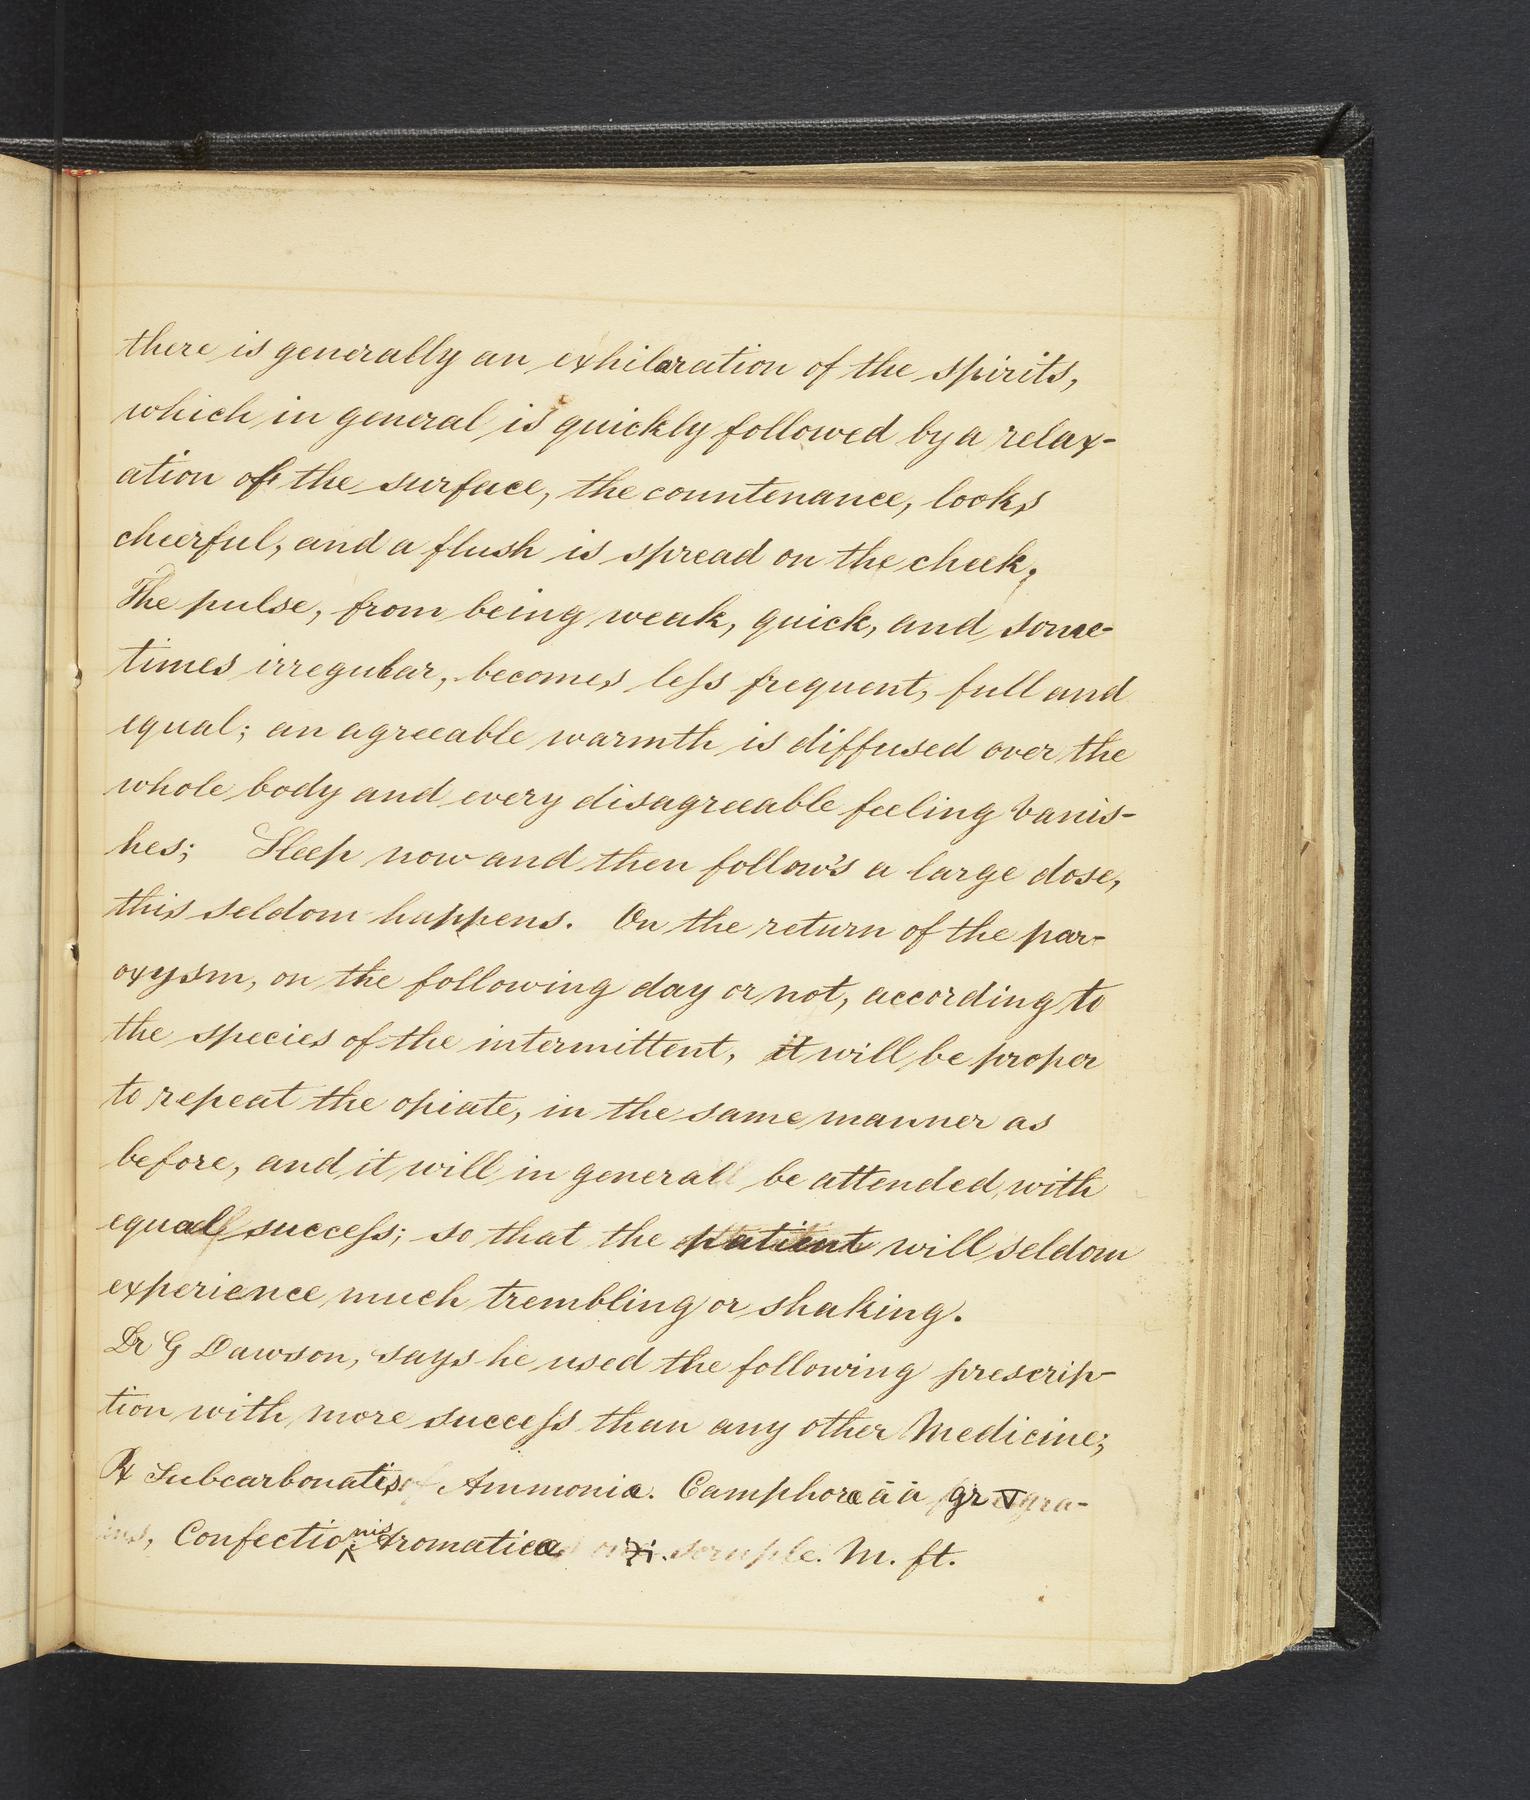 there is generally an exhilaration of the spirits,
which in general is quickly followed by a relax-
ation of the surface, the countenance, looks
cheerful, and a flush is spread on the cheek.
The pulse, from being weak, quick, and some-
times irregular, becomes less frequent, full and
equal; an agreeable warmth is diffused over the
whole body and every disagreeable feeling vanis-
hes; Sleep now and then follow's a large dose,
this seldom happens. On the return of the par-
oxysm, on the following day or not, according to
the species of the intermittent, it will be proper
to repeat the opiate, in the same manner as
before, and it will in general be attended with
equal success; so that the patient will seldom
experience much trembling or shaking.
Dr G Dawson, says he used the following prescrip-
tion with more success than any other Medicine;
℞ Subcarbonatis Ammonia. Camphora āā gr V
Confectionis Aromatica ℈i. M. ft.